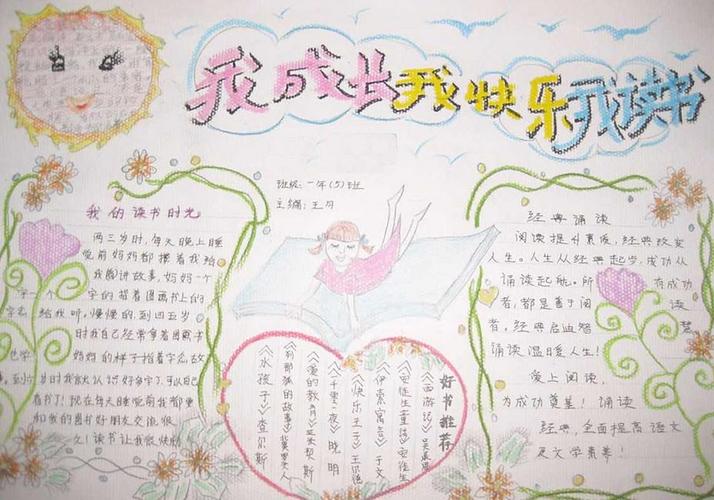 我成长我快乐我读书
班级：一年(5)班
主编：王月
我的读书时光
两三岁时，每天晚上睡
觉前妈妈都搂着我给
我讲故事，妈妈一个
字一个字的指着图画书上的
给我听，慢慢的，到四五岁
时我自己经常拿着图画书
妈妈的样子指着字念故
岁时我就认识好多字了，可以自己
看书了！现在每天睡觉前我都要
和我的图书好朋友交流很
久！读书让我很快乐
好书推荐
《西游记》吴承恩
《安徒生童话》安徒生
《伊索寓言》于文
《快乐王子》王尔德
《一千零一夜》晓明
《爱的教育》
《列那狐的故事》
《水孩子》查尔斯
经典诵读
阅读提升素质，经典改变
人生。人生从经典起步，成功从
诵读起航。所有成功
者，都是善于阅读
者，经典启迪智慧
诵读温暖人生！
爱上阅读，
为成功奠基！诵读
经典，全面提高语文
及文学素养！